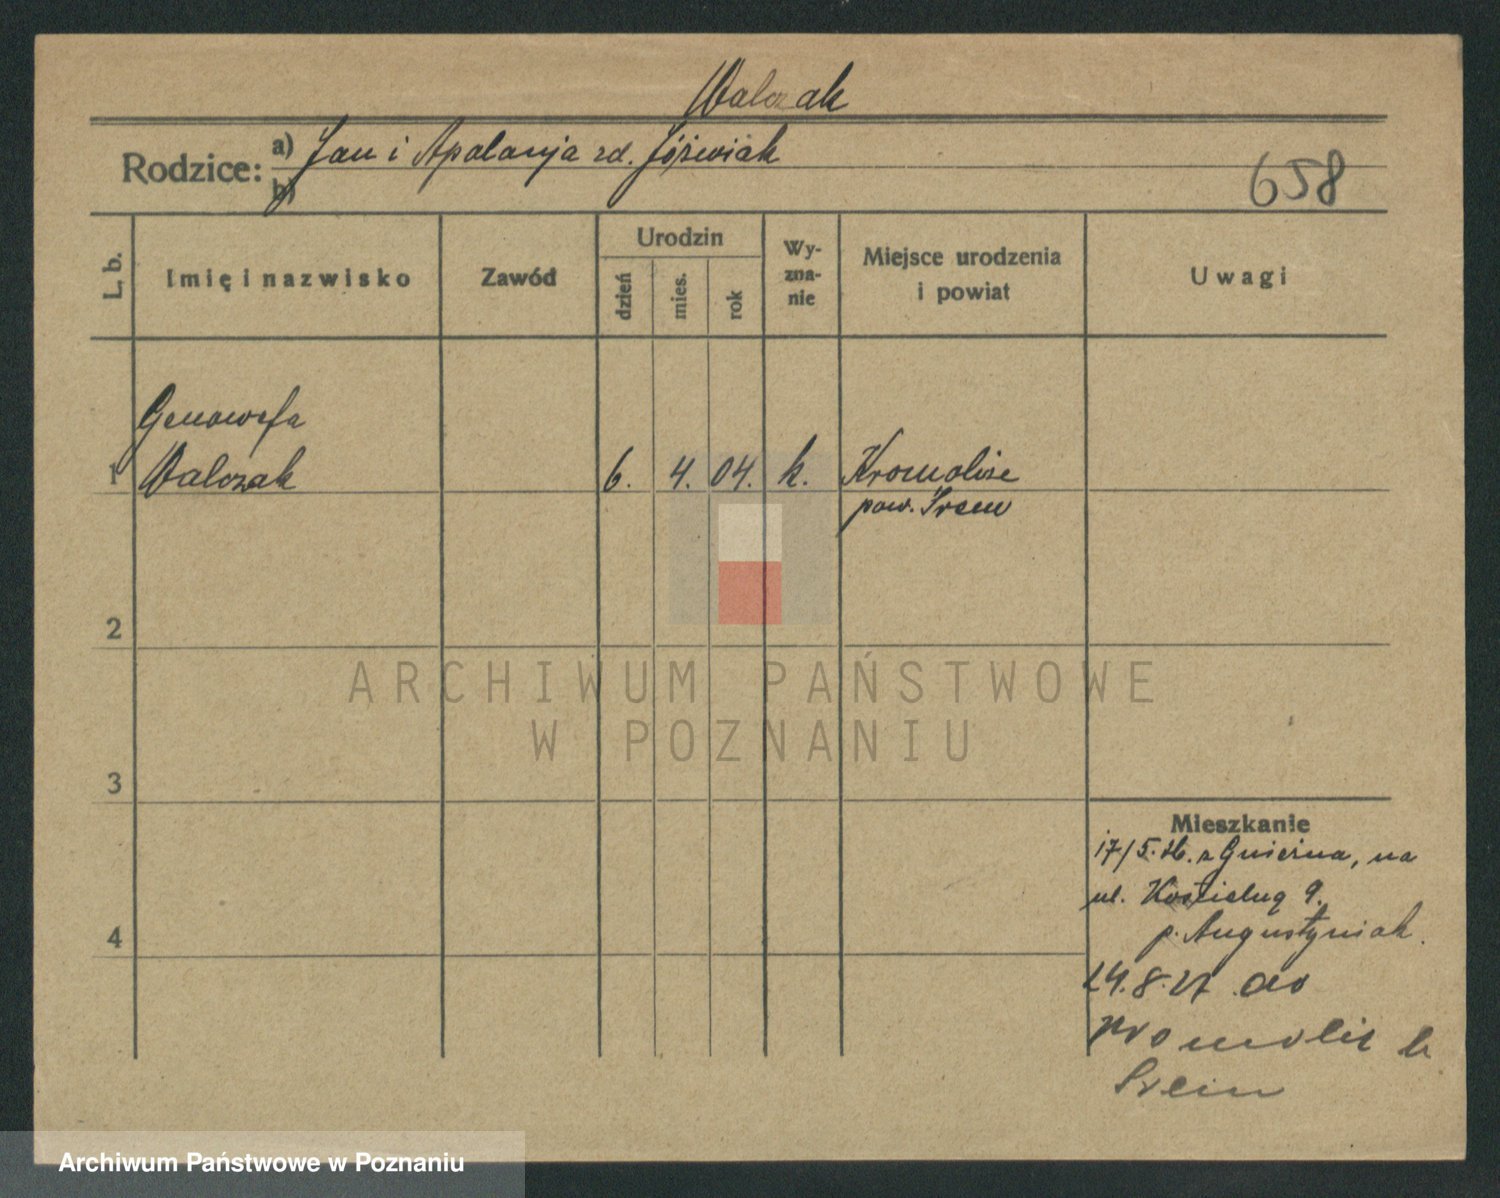 Walczak
Rodzice: a) Jan i Apolonja zd. Jóźwiak
b)
658
L. b.
Imię i nazwisko
Zawód
Urodzin
dzień
mies.
rok
Wy-
zna-
nie
Miejsce urodzenia
i powiat
Uwagi
Genowefa
1 Walczak 6. 4. 04. k. Kromolice
pow. Śrem
2
3
4
Mieszkanie
17/5.26. z Gniezna, na
ul. Kościelną 9.
p. Augustyniak.
24.8.27 do
Kromolic
Śrem
ARCHIWUM PAŃSTWOWE
W POZNANIU
Archiwum Państwowe w Poznaniu